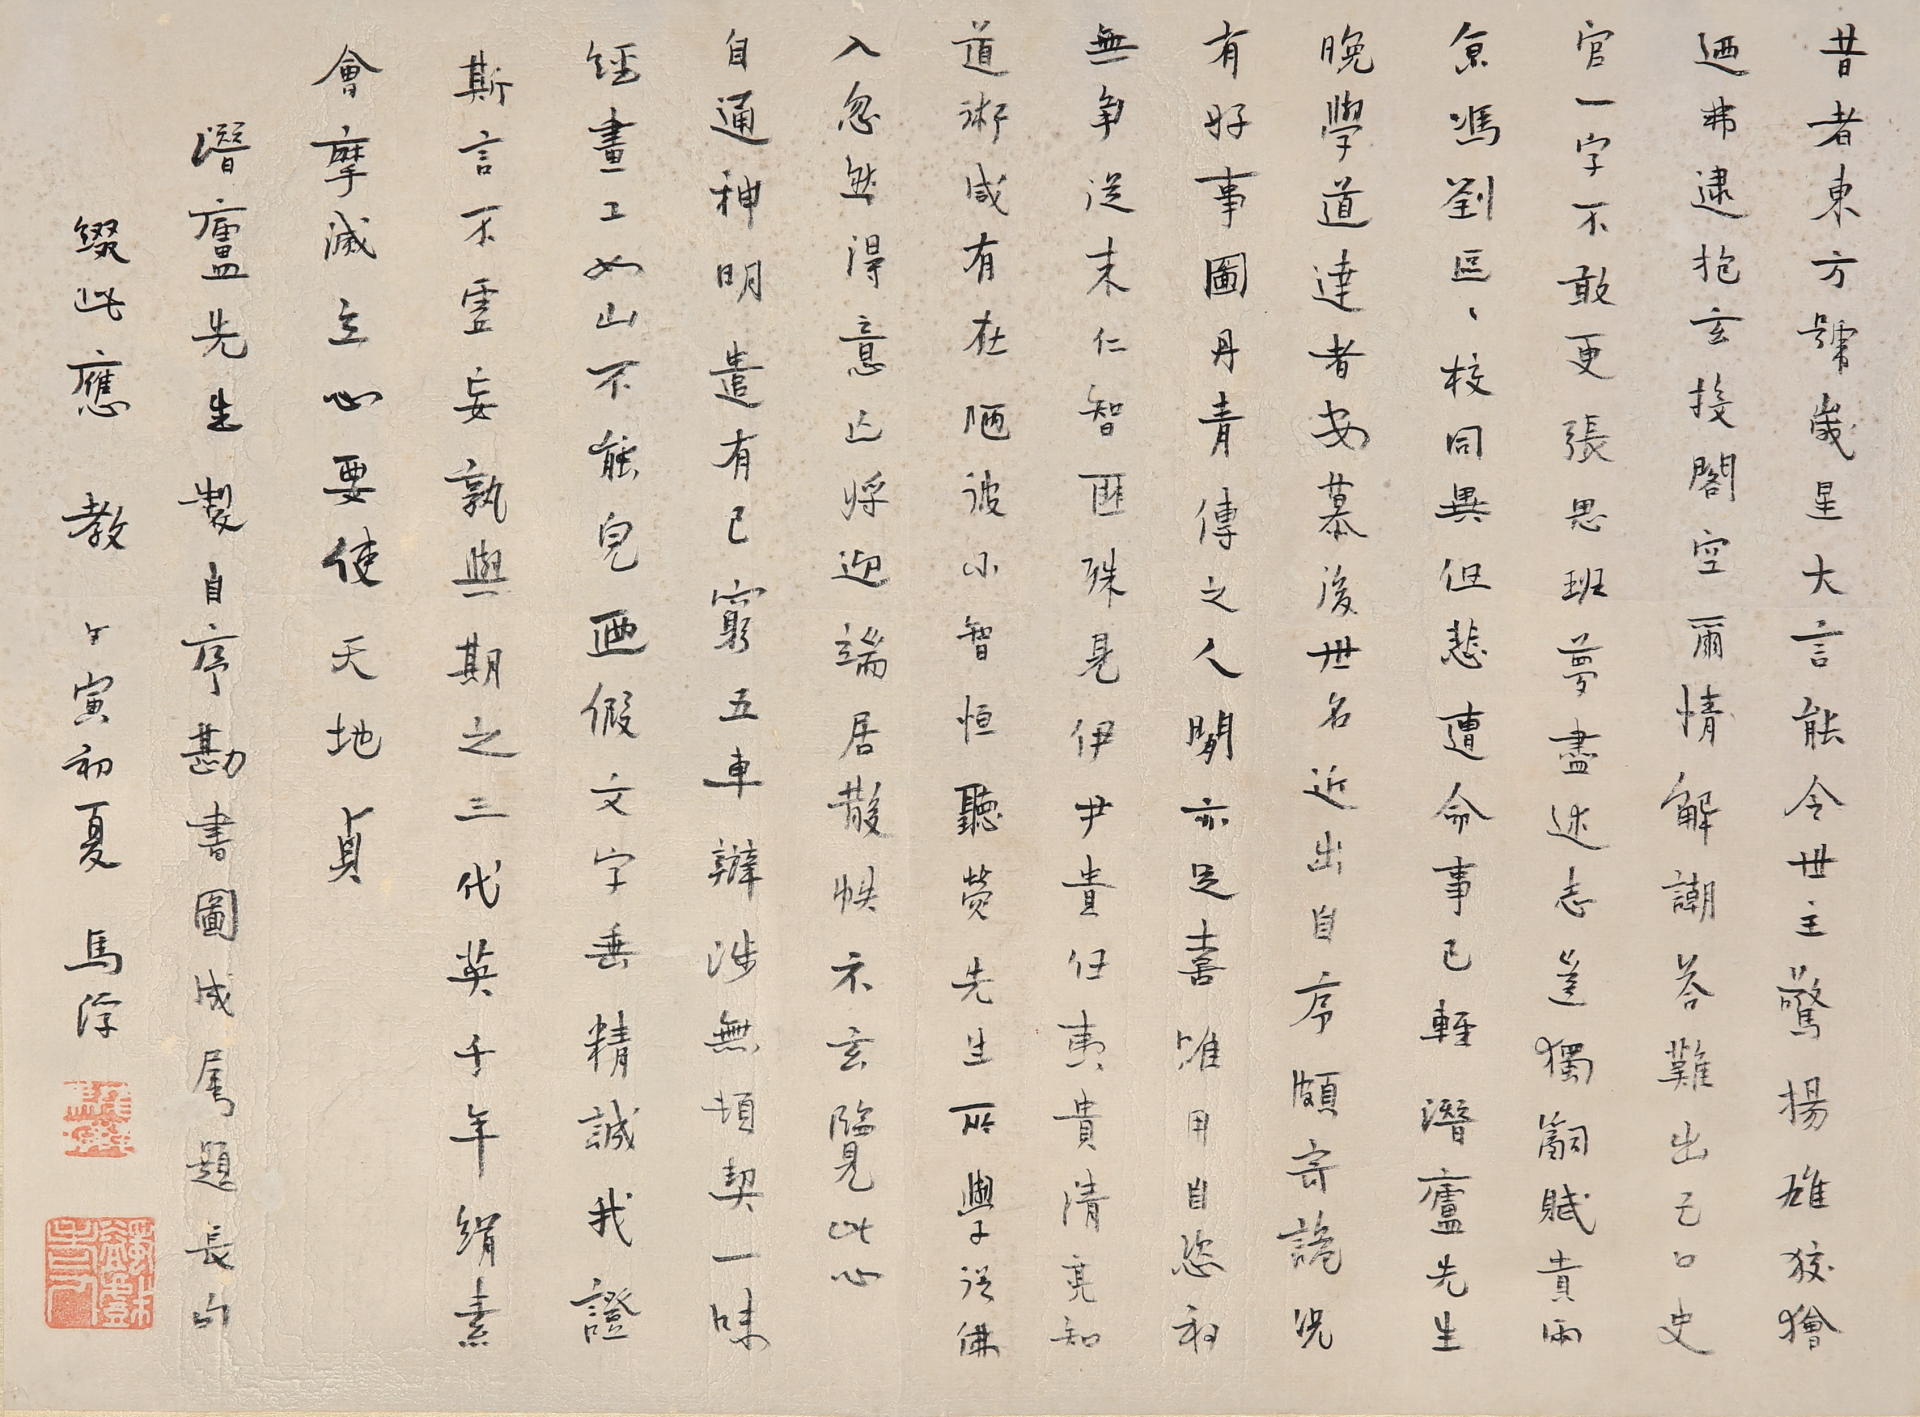 昔者東方號歲星大言能令世主驚揚雄狡獪
迺弗逮抱玄投閣空爾情解嘲荅難出己口史
官一字不敢更張思班夢盡述志邕獨嗣賦貴兩
京馮劉區〻校同異但悲遭命事已輕潛廬先生
晚學道達者安慕後世名近出自序頗寄詭況
有好事圖丹青傳之人間亦足喜唯用自恣初
無争從末仁智匪殊見伊尹貴任夷貴清竟知
道術咸有在陋彼小智恒聽熒先生所學從佛
入忽然得意亡將迎端居散帙不玄覽此心
自通神明遣有已窮五車辯涉無頃契一味
經畫工如山不能皃迺假文字垂精誠我證
斯言不虛妄孰與期之三代英千年絹素
會摩滅立心要使天地貞
潛廬先生製自序勘書圖成屬題長句
綴此應 教 戊寅初夏 馬浮